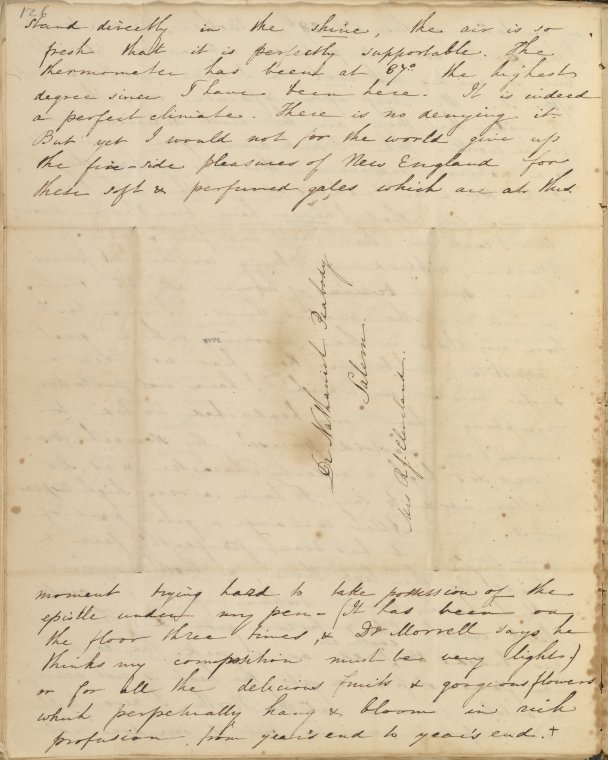 126
stand directly in the shine, the air is so
fresh that it is perfectly supportable. The
thermometer has been at 87° the highest
degree since I have been here. It is indeed
a perfect climate. There is no denying it
But yet I would not for the world give up
the fire-side pleasures of New England for
these soft & perfumed gales which are at this
Dr Nathaniel Peabody
Salem.
R. J. Cleveland.
NYPL
moment trying hard to take possession of the
epistle under my pen - (It has been on
the floor three times, & Dr Morrell says he
thinks my composition must be very light,)
or for all the delicious fruits & gorgeous flowers
which perpetually hang & bloom in rich
profusion from year's end to year's end. +